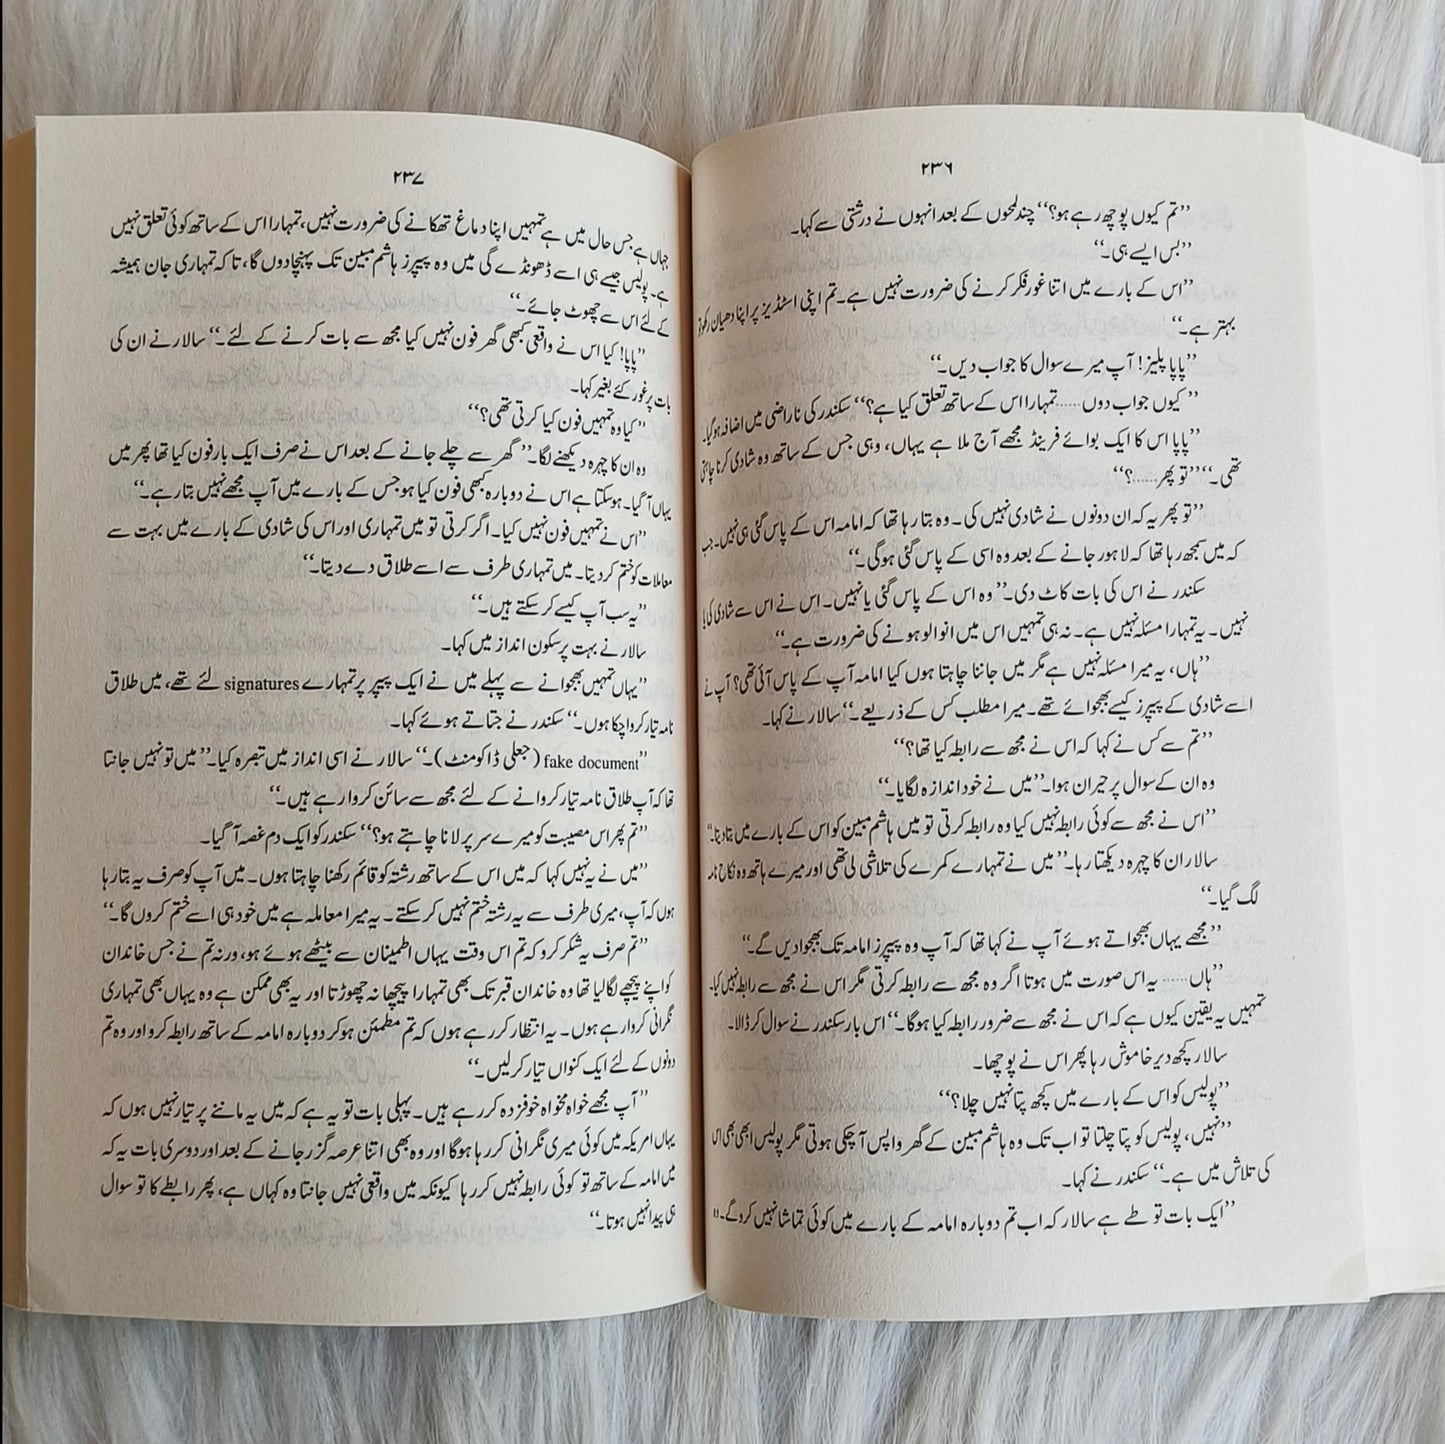 ۲۳۶
’’تم کیوں پوچھ رہے ہو؟‘‘ چند لمحوں کے بعد انہوں نے درشتی سے کہا۔
’’بس ایسے ہی۔‘‘
’’اس کے بارے میں اتنا غور فکر کرنے کی ضرورت نہیں ہے۔ تم اپنی اسٹڈیز پر اپنا دھیان رکھو تو
بہتر ہے۔‘‘
’’پاپا پلیز! آپ میرے سوال کا جواب دیں۔‘‘
’’کیوں جواب دوں...... تمہارا اس کے ساتھ تعلق کیا ہے؟‘‘ سکندر کی ناراضی میں اضافہ ہو گیا۔
’’پاپا اس کا ایک بوائے فرینڈ مجھے آج ملا ہے یہاں، وہی جس کے ساتھ وہ شادی کرنا چاہتی
تھی۔‘‘ ’’تو پھر......؟‘‘
’’تو پھر یہ کہ ان دونوں نے شادی نہیں کی۔ وہ بتا رہا تھا کہ امامہ اس کے پاس گئی ہی نہیں۔ جب
کہ میں سمجھ رہا تھا کہ لاہور جانے کے بعد وہ اسی کے پاس گئی ہو گی۔‘‘
سکندر نے اس کی بات کاٹ دی۔ ’’وہ اس کے پاس گئی یا نہیں۔ اس نے اس سے شادی کی یا
نہیں۔ یہ تمہارا مسئلہ نہیں ہے۔ نہ ہی تمہیں اس میں انوالو ہونے کی ضرورت ہے۔‘‘
’’ہاں، یہ میرا مسئلہ نہیں ہے مگر میں جاننا چاہتا ہوں کیا امامہ آپ کے پاس آئی تھی؟ آپ نے
اسے شادی کے پیپرز کیسے بھجوائے تھے۔ میرا مطلب کس کے ذریعے۔‘‘ سالار نے کہا۔
’’تم سے کس نے کہا کہ اس نے مجھ سے رابطہ کیا تھا؟‘‘
وہ ان کے سوال پر حیران ہوا۔ ’’میں نے خود اندازہ لگایا۔‘‘
’’اس نے مجھ سے کوئی رابطہ نہیں کیا وہ رابطہ کرتی تو میں ہاشم مبین کو اس کے بارے میں بتا دیتا۔‘‘
سالار ان کا چہرہ دیکھتا رہا۔ ’’میں نے تمہارے کمرے کی تلاشی لی تھی اور میرے ہاتھ وہ نکاح نامہ
لگ گیا۔‘‘
’’مجھے یہاں بھجواتے ہوئے آپ نے کہا تھا کہ آپ وہ پیپرز امامہ تک بھجوا دیں گے۔‘‘
’’ہاں...... یہ اس صورت میں ہوتا اگر وہ مجھ سے رابطہ کرتی مگر اس نے مجھ سے رابطہ نہیں کیا۔
تمہیں یہ یقین کیوں ہے کہ اس نے مجھ سے ضرور رابطہ کیا ہوگا۔‘‘ اس بار سکندر نے سوال کر ڈالا۔
سالار کچھ دیر خاموش رہا پھر اس نے پوچھا۔
’’پولیس کو اس کے بارے میں کچھ پتا نہیں چلا؟‘‘
’’نہیں، پولیس کو پتا چلتا تو اب تک وہ ہاشم مبین کے گھر واپس آ چکی ہوتی مگر پولیس ابھی بھی اس
کی تلاش میں ہے۔‘‘ سکندر نے کہا۔
’’ایک بات تو طے ہے سالار کہ اب تم دوبارہ امامہ کے بارے میں کوئی تماشا نہیں کرو گے۔
۲۳۷
جہاں ہے جس حال میں ہے تمہیں اپنا دماغ تھکانے کی ضرورت نہیں، تمہارا اس کے ساتھ کوئی تعلق نہیں
ہے۔ پولیس جیسے ہی اسے ڈھونڈے گی میں وہ پیپرز ہاشم مبین تک پہنچا دوں گا، تا کہ تمہاری جان ہمیشہ
کے لئے اس سے چھوٹ جائے۔‘‘
’’پاپا! کیا اس نے واقعی کبھی گھر فون نہیں کیا مجھ سے بات کرنے کے لئے۔‘‘ سالار نے ان کی
بات پر غور کئے بغیر کہا۔
’’کیا وہ تمہیں فون کیا کرتی تھی؟‘‘
وہ ان کا چہرہ دیکھنے لگا۔ ’’گھر سے چلے جانے کے بعد اس نے صرف ایک بار فون کیا تھا پھر میں
یہاں آ گیا۔ ہو سکتا ہے اس نے دوبارہ کبھی فون کیا ہو جس کے بارے میں آپ مجھے نہیں بتا رہے۔‘‘
’’اس نے تمہیں فون نہیں کیا۔ اگر کرتی تو میں تمہاری اور اس کی شادی کے بارے میں بہت سے
معاملات کو ختم کر دیتا۔ میں تمہاری طرف سے اسے طلاق دے دیتا۔‘‘
’’یہ سب آپ کیسے کر سکتے ہیں۔‘‘
سالار نے بہت پر سکون انداز میں کہا۔
’’یہاں تمہیں بھجوانے سے پہلے میں نے ایک پیپر پر تمہارے signatures لئے تھے، میں طلاق
نامہ تیار کروا چکا ہوں۔‘‘ سکندر نے جتاتے ہوئے کہا۔
’’fake document (جعلی ڈاکومنٹ)۔‘‘ سالار نے اسی انداز میں تبصرہ کیا۔ ’’میں تو نہیں جانتا
تھا کہ آپ طلاق نامہ تیار کروانے کے لئے مجھ سے سائن کروا رہے ہیں۔‘‘
’’تم پھر اس مصیبت کو میرے سر پر لانا چاہتے ہو؟‘‘ سکندر کو ایک دم غصہ آ گیا۔
’’میں نے یہ نہیں کہا کہ میں اس کے ساتھ رشتہ کو قائم رکھنا چاہتا ہوں۔ میں آپ کو صرف یہ بتا رہا
ہوں کہ آپ، میری طرف سے یہ رشتہ ختم نہیں کر سکتے۔ یہ میرا معاملہ ہے میں خود ہی اسے ختم کروں گا۔‘‘
’’تم صرف یہ شکر کرو کہ تم اس وقت یہاں اطمینان سے بیٹھے ہوئے ہو، ورنہ تم نے جس خاندان
کو اپنے پیچھے لگا لیا تھا وہ خاندان قبر تک بھی تمہارا پیچھا نہ چھوڑتا اور یہ بھی ممکن ہے وہ یہاں بھی تمہاری
نگرانی کروا رہے ہوں۔ یہ انتظار کر رہے ہوں کہ تم مطمئن ہو کر دوبارہ امامہ کے ساتھ رابطہ کرو اور وہ تم
دونوں کے لئے ایک کنواں تیار کر لیں۔‘‘
’’آپ مجھے خواہ مخواہ خوفزدہ کر رہے ہیں۔ پہلی بات تو یہ ہے کہ میں یہ ماننے پر تیار نہیں ہوں کہ
یہاں امریکہ میں کوئی میری نگرانی کر رہا ہوگا اور وہ بھی اتنا عرصہ گزر جانے کے بعد اور دوسری بات یہ کہ
میں امامہ کے ساتھ تو کوئی رابطہ نہیں کر رہا کیونکہ میں واقعی نہیں جانتا وہ کہاں ہے، پھر رابطے کا تو سوال
ہی پیدا نہیں ہوتا۔‘‘